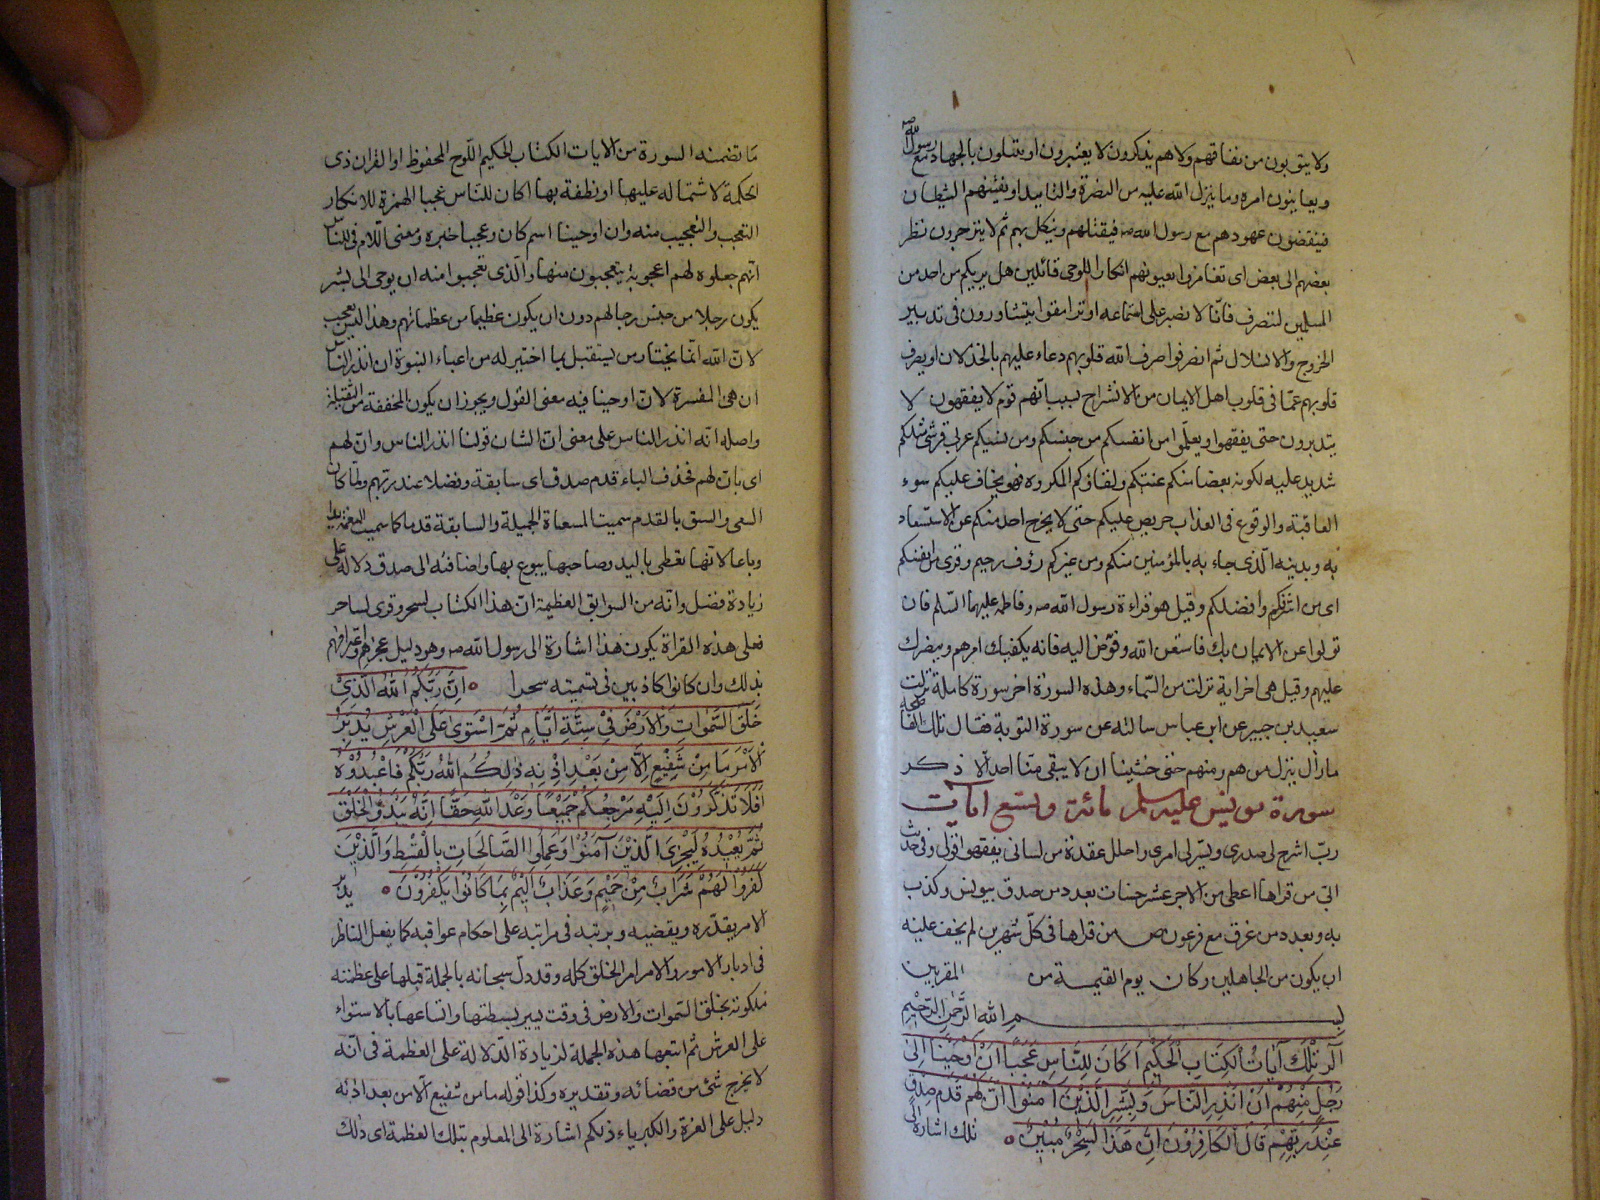 ولا يتوبون من نفاقهم ولا هم يذكرون لا يعتبرون او يبتلون بالجهاد مع رسول الله
ويعاينون امره وما ينزل الله عليه من النصرة والتاييد او يفتنهم الشيطان
فينقضون عهودهم مع رسول الله صه فيقتلهم وينكل بهم ثم لا ينزجرون نظر
بعضهم الى بعض اى تغامزوا بعيونهم انكارا للوحى قائلين هل يريكم من احد من
المسلمين لننصرف فانا لا نصبر على استماعه او ترامقوا يتشاورون فى تدبير
الخروج والانسلال ثم انصرفوا صرف الله قلوبهم دعاء عليهم بالخذلان او بصرف
قلوبهم عما فى قلوب اهل الايمان من الانشراح بسبب انهم قوم لا يفقهون لا
يتدبرون حتى يفقهوا ويعلموا من انفسكم من جنسكم ومن نسبكم عربى قرشى مثلكم
شديد عليه لكونه بعضا منكم عنتكم ولقاؤكم المكروه فهو يخاف عليكم سوء
العاقبة والوقوع فى العذاب حريص عليكم حتى لا يخرج احد منكم عن الاستسعاد
به وبدينه الذى جاء به بالمؤمنين منكم ومن غيركم رؤف رحيم وقرى من انفسكم
اى من اشرفكم وافضلكم وقيل هو قراءة رسول الله صه وفاطمه عليهما السلم فان
تولوا عن الايمان بك فاستعن الله وفوض اليه فانه يكفيك امرهم وينصرك
عليهم وقيل هى اخر اية نزلت من السماء وهذه السورة اخر سورة كاملة نزلت
سعيد بن جبير عن ابن عباس سالته عن سورة التوبة فقال تلك الفاضحة
ما زال ينزل منهم ومنهم حتى خشينا ان لا يبقى منا احد الا ذكر
سورة يونس عليه سلم مائة وتسع آيات
رب اشرح لى صدرى ويسر لى امرى واحلل عقدة من لسانى يفقهوا قولى وفى حديث
ابى من قراها اعطى من الاجر عشر حسنات بعدد من صدق بيونس وكذب
به وبعدد من غرق مع فرعون ص من قراها فى كل شهرين لم يخف عليه
ان يكون من الجاهلين وكان يوم القيمة من المقربين
بسم الله الرحمن الرحيم
الٓر تِلْكَ آيَاتُ الْكِتَابِ الْحَكِيْمِ اَكَانَ لِلنَّاسِ عَجَبًا اَنْ اَوْحَيْنَا اِلَىٰ
رَجُلٍ مِنْهُمْ اَنْ اَنْذِرِ النَّاسَ وَبَشِّرِ الَّذِيْنَ اٰمَنُوْا اَنَّ لَهُمْ قَدَمَ صِدْقٍ
عِنْدَ رَبِّهِمْ قَالَ الْكَافِرُوْنَ اِنَّ هَذَا لَسِحْرٌ مُبِيْنٌ تلك اشارة الى
ما تضمنه السورة من الايات الكتاب الحكيم اللوح المحفوظ او القران ذى
الحكمة لاشتماله عليها او نطقه بها اكان للناس عجبا الهمزة للانكار
التعجب والتعجيب منه وان اوحينا اسم كان وعجبا خبره ومعنى اللام فى للناس
انهم جعلوه لهم اعجوبة يتعجبون منها والذى تعجبوا منه ان يوحى الى بشر
يكون رجلا من جنس رجالهم دون ان يكون عظيما من عظمائهم وهذا ليس بعجب
لان الله انما يختار من يستقبل بما اختير له من اعباء النبوة ان انذر الناس
ان هى المفسرة لان اوحينا فيه معنى القول ويجوز ان يكون المخففة من الثقيلة
واصله انه انذر الناس على معنى ان الشان قولنا انذر الناس وان لهم
اى بان لهم فحذف الباء قدم صدق اى سابقة وفضلا عند ربهم ولما كان
السعى والسبق بالقدم سميت المسعاة الجميلة والسابقة قدما كما سميت النعمة يدا
وباعا لانها تعطى باليد وصاحبها يبوع بها واضافته الى صدق دلالة على
زيادة فضل وانه من السوابق العظيمة ان هذا الكتاب لسحر وقرى لساحر
فعلى هذه القراة يكون هذا اشارة الى رسول الله صه وهو دليل عجزهم واعترافهم
بذلك وان كانوا كاذبين فى تسميته سحرا اِنَّ رَبَّكُمُ اللهُ الَّذِيْ
خَلَقَ السَّمٰوَاتِ وَالْاَرْضَ فِيْ سِتَّةِ اَيَّامٍ ثُمَّ اسْتَوٰى عَلَى الْعَرْشِ يُدَبِّرُ
الْاَمْرَ مَا مِنْ شَفِيْعٍ اِلَّا مِنْ بَعْدِ اِذْنِهِ ذٰلِكُمُ اللهُ رَبُّكُمْ فَاعْبُدُوْهُ
اَفَلَا تَذَكَّرُوْنَ اِلَيْهِ مَرْجِعُكُمْ جَمِيْعًا وَعْدَ اللهِ حَقًّا اِنَّهُ يَبْدَؤُا الْخَلْقَ
ثُمَّ يُعِيْدُهُ لِيَجْزِيَ الَّذِيْنَ آمَنُوْا وَعَمِلُوا الصَّالِحَاتِ بِالْقِسْطِ وَالَّذِيْنَ
كَفَرُوْا لَهُمْ شَرَابٌ مِنْ حَمِيْمٍ وَعَذَابٌ اَلِيْمٌ بِمَا كَانُوْا يَكْفُرُوْنَ يدبر
الامر يقدره ويقضيه ويرتبه فى مراتبه على احكام عواقبه كما يفعل الناظر
فى ادبار الامور والامر امر الخلق كله وقد دل سبحانه بالجملة قبلها على عظمته
ملكوته بخلق السموات والارض فى وقت يسير مع بسطتها واتساعها بالاستواء
على العرش ثم اتبعها هذه الجملة لزيادة الدلالة على العظمة فى انه
لا يخرج شئ من قضائه وتقديره وكذا قوله ما من شفيع الا من بعد اذنه
دليل على العزة والكبرياء ذلكم اشارة الى المعلوم بتلك العظمة اى ذلك